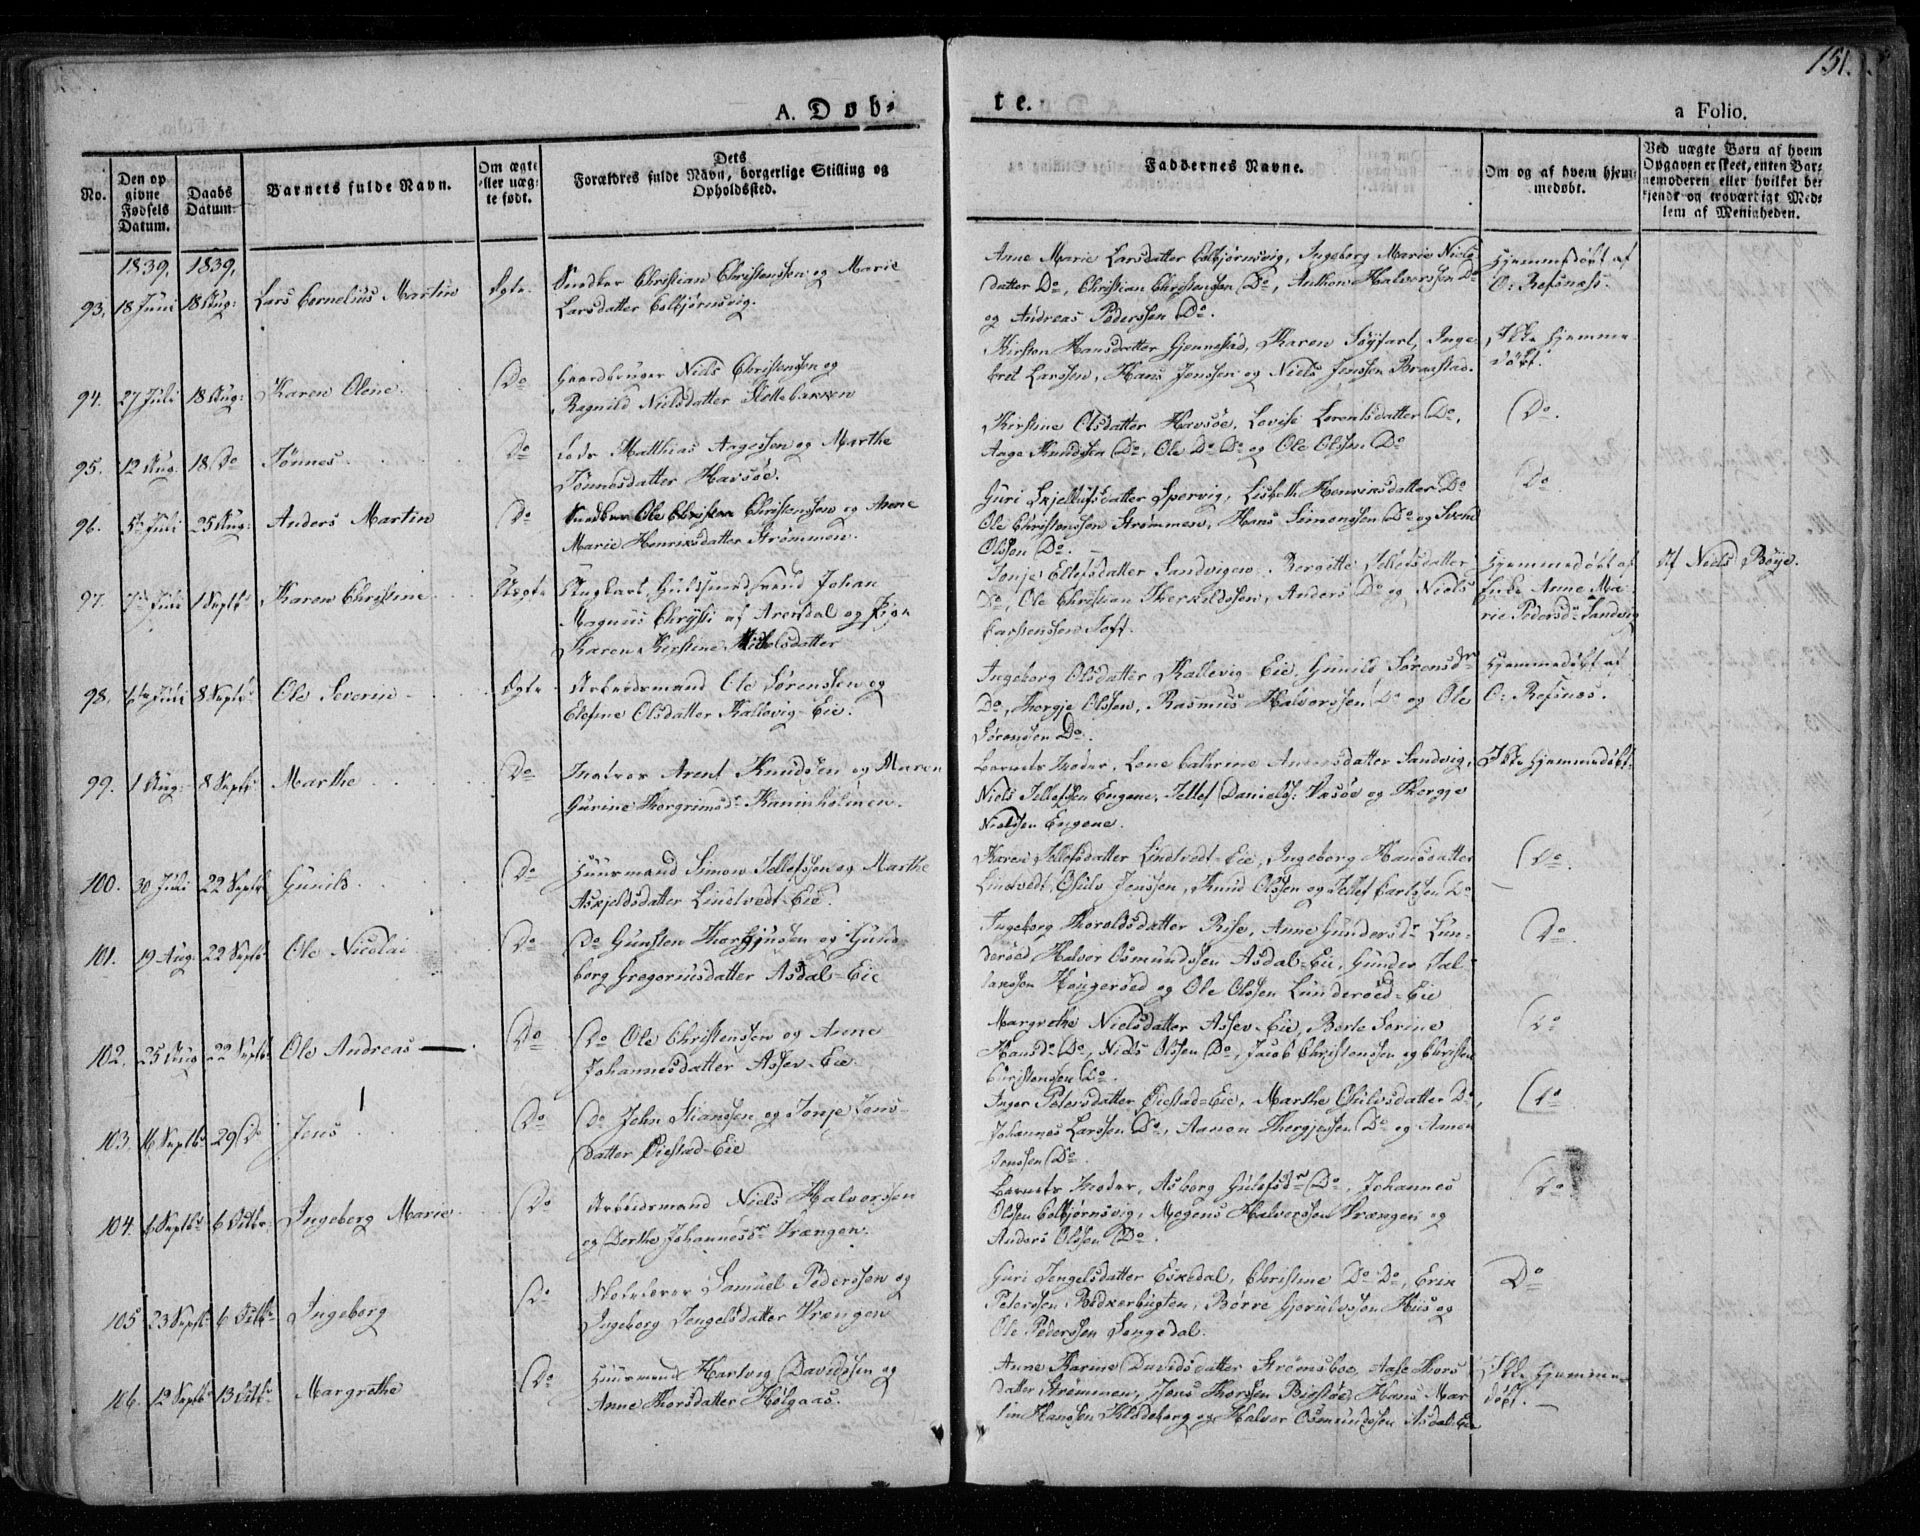 151.
A. Døb-
te.
a Folio.
No.
Den op
givne
Fødsels
Datum.
Daabs
Datum.
Barnets fulde Navn.
Om ægte
eller uæg-
te født.
Dets
Forældres fulde Navn, borgerlige Stilling og
Opholdssted.
Faddernes Navne.
Om og af hvem hjem-
medøbt.
Ved uægte Børn af hvem
Opgaven er skeet, enten Bar-
nemoderen eller hvilket be-
kjendt og troværdigt Med-
lem af Menigheden.
1839, 1839,
93. 18 Juni 18 Aug: Lars Cornelius Martin Ægte Snedker Christian Christenssen og Marie
Larsdatter Colbjørnsvig.
Anne Marie Larsdatter Colbjørnsvig, Ingeborg Marie Niels
datter Do, Christian Christenssen Do, Anthon Halvorssen Do
og Andreas Pederssen Do.
Hjemmedøbt af
O: Refsnæs.
94. 27 Juli 18 Aug: Karen Olene Do Gaardbruger Niels Christenssen og
Ragnild Nielsdatter Slottebakken
Kirsten Hansdatter Gjennestad, Karen Søyfart, Inge-
bret Larssen, Hans Jenssen og Niels Jenssen Braastad.
Ikke hjemme-
døbt.
95. 12 Aug. 18 Do Tønnes Do Lods Matthias Aagessen og Marthe
Tønnesdatter Havsøe.
Kirstine Olsdatter Havsøe, Lovise Lorentsdatter Do,
Aage Knudssen Do, Ole Do Do og Ole Olssen Do
Do.
96. 5te Juli 25 Aug: Anders Martin Do Snedker Ole Christenssen og Anne
Marie Henriksdatter Strømmen.
Guri Kjellufsdatter Spervig, Lisbeth Henriksdatter Do
Ole Christenssen Strømmen, Hans Simonssen Do og Svend
Olssen Do.
Do
97. 7de Juli 1 Septbr Karen Christine Uægte Ungkarl Guldsmedsvend Johan
Magnus Chrysti af Arendal og Pige
Karen Kirstine Nielsdatter
Tonje Ellefsdatter Sandvigen, Bergitte Tellefsdatter
Do, Ole Christian Therkildssen, Anders Do og Niels
Carstenssen Toft.
Hjemmedøbt af
Enke Anne Ma-
rie Pedersdr Sandvig
Af Niels Bøije.
98. 6te Juli 8 Septbr Ole Severin Ægte Arbeidsmand Ole Sørenssen og
Elefine Olsdatter Kallevig-Eie.
Ingeborg Olsdatter Kallevig-Eie, Gunild Sørensdr
Do, Thorgje Olssen, Rasmus Halvorssen Do og Ole
Sørenssen Do.
Hjemmedøbt af
O: Refsnæs.
99. 1 Aug: 8 Septbr Marthe Do Matros Arent Knudssen og Maren
Gurine Thorgrimsdr Kaninholmen.
Barnets Moder, Lene Cathrine Andersdatter Sandvig,
Niels Tellefssen Engene, Tellef Danielss: Vasøe og Thorgje
Nielssen Engene.
Ikke hjemmedøbt.
100. 30 Juli 22 Septbr Gunild Do Huusmand Simon Tellefssen og Marthe
Askjeldsdatter Lindtvedt-Eie.
Karen Tellefsdatter Lindtvedt-Eie, Ingeborg Hansdatter
Lindtvedt, Osulv Jenssen, Knud Olssen og Tellef Carlssen Do
Do.
101. 19 Aug. 22 Septbr Ole Nicolai Do Do Gunsten Thorgjussen og Gund-
borg Gregoriusdatter Asdal-Eie
Ingeborg Tharaldsdatter Rise, Anne Gundersdr Lun-
derøed, Halvor Osmundssen Asdal-Eie, Gunder Tal-
lakssen Haugerøed og Ole Olssen Lunderøed-Eie
Do.
102. 25 Aug 22 Septbr Ole Andreas Do Do Ole Christenssen og Anne
Johannesdatter Assev-Eie.
Margrethe Nielsdatter Assev-Eie, Berte Sorine
Hansdr Do, Niels Olssen Do, Jacob Christenssen og Christen
Christenssen Do.
Do
103. 16 Septbr 29 Do Jens Do Do John Stianssen og Tonje Jens-
datter Øiestad-Eie
Inger Petersdatter Øiestad-Eie, Marthe Osulvsdatter Do,
Johannes Larssen Do, Aanon Thorgjussen Do og Aanon
Jenssen Do.
Do
104. 6 Septbr 6 Octbr Ingeborg Marie Do Arbeidsmand Niels Halvorssen
og Dorthe Johannesdr Vrængen.
Barnets Moder, Asborg Gulefsdr Do, Johannes
Olssen Colbjørnsvig, Mogens Halvorssen Vrængen og
Anders Olssen Do.
Do
105. 23 Septbr 6 Octbr Ingeborg Do Samuel Pederssen og
Ingeborg Tengelsdatter Vrængen
Guri Tengelsdatter Eskedal, Christine Do Do, Erik
Peterssen Bødkerbugten, Børre Gjerulvssen Hiis og
Ole Pederssen Songedal.
Do
106. 12 Septbr 13 Octbr Margrethe Do Huusmand Hartvig Davidssen og
Anne Thorsdatter Helgaas.
Anne Karine Davidsdatter Strømsboe, Aase Thors-
datter Strømmen, Jens Thorssen Biestøe, Hans Mar-
tin Hanssen Klodeborg og Halvor Osmundssen Asdal-Eie
Ikke hjemme-
døbt.